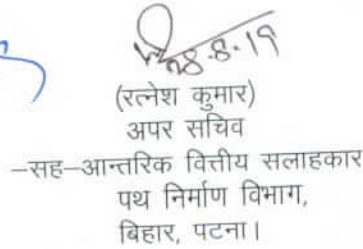 28.8.19
(रत्नेश कुमार)
अपर सचिव
–सह–आन्तरिक वित्तीय सलाहकार
पथ निर्माण विभाग,
बिहार, पटना।